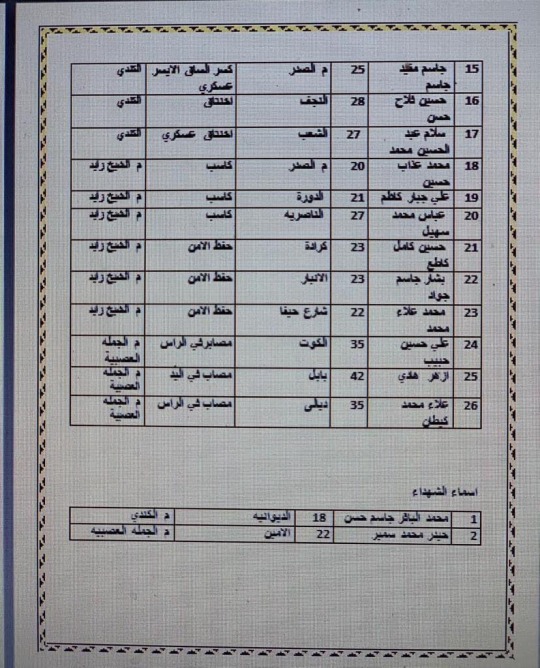 15 جاسم مقيد جاسم 25 م الصدر كسر الساق الايسر عسكري الكندي
16 حسين فلاح حسن 28 النجف اختناق الكندي
17 سلام عبد الحسين محمد 27 الشعب اختناق عسكري الكندي
18 محمد عذاب حسين 20 م الصدر كاسب م الشيخ زايد
19 علي جبار كاظم 21 الدورة كاسب م الشيخ زايد
20 عباس محمد سهيل 27 الناصريه كاسب م الشيخ زايد
21 حسين كامل كاطع 23 كرادة حفظ الامن م الشيخ زايد
22 بشار جاسم جواد 23 الانبار حفظ الامن م الشيخ زايد
23 محمد علاء محمد 22 شارع حيفا حفظ الامن م الشيخ زايد
24 علي حسين حبيب 35 الكوت الراس م الجمله العصبية
25 ازهر هادي 42 بابل مصاب في اليد م الجمله العصبية
26 علاء محمد كيطان 35 ديالى مصاب في الراس م الجمله العصبية
اسماء الشهداء
1 محمد الباقر جاسم حسن 18 الديوانيه م الكندي
2 حيدر محمد سمير 22 الامين م الجمله العصبيه